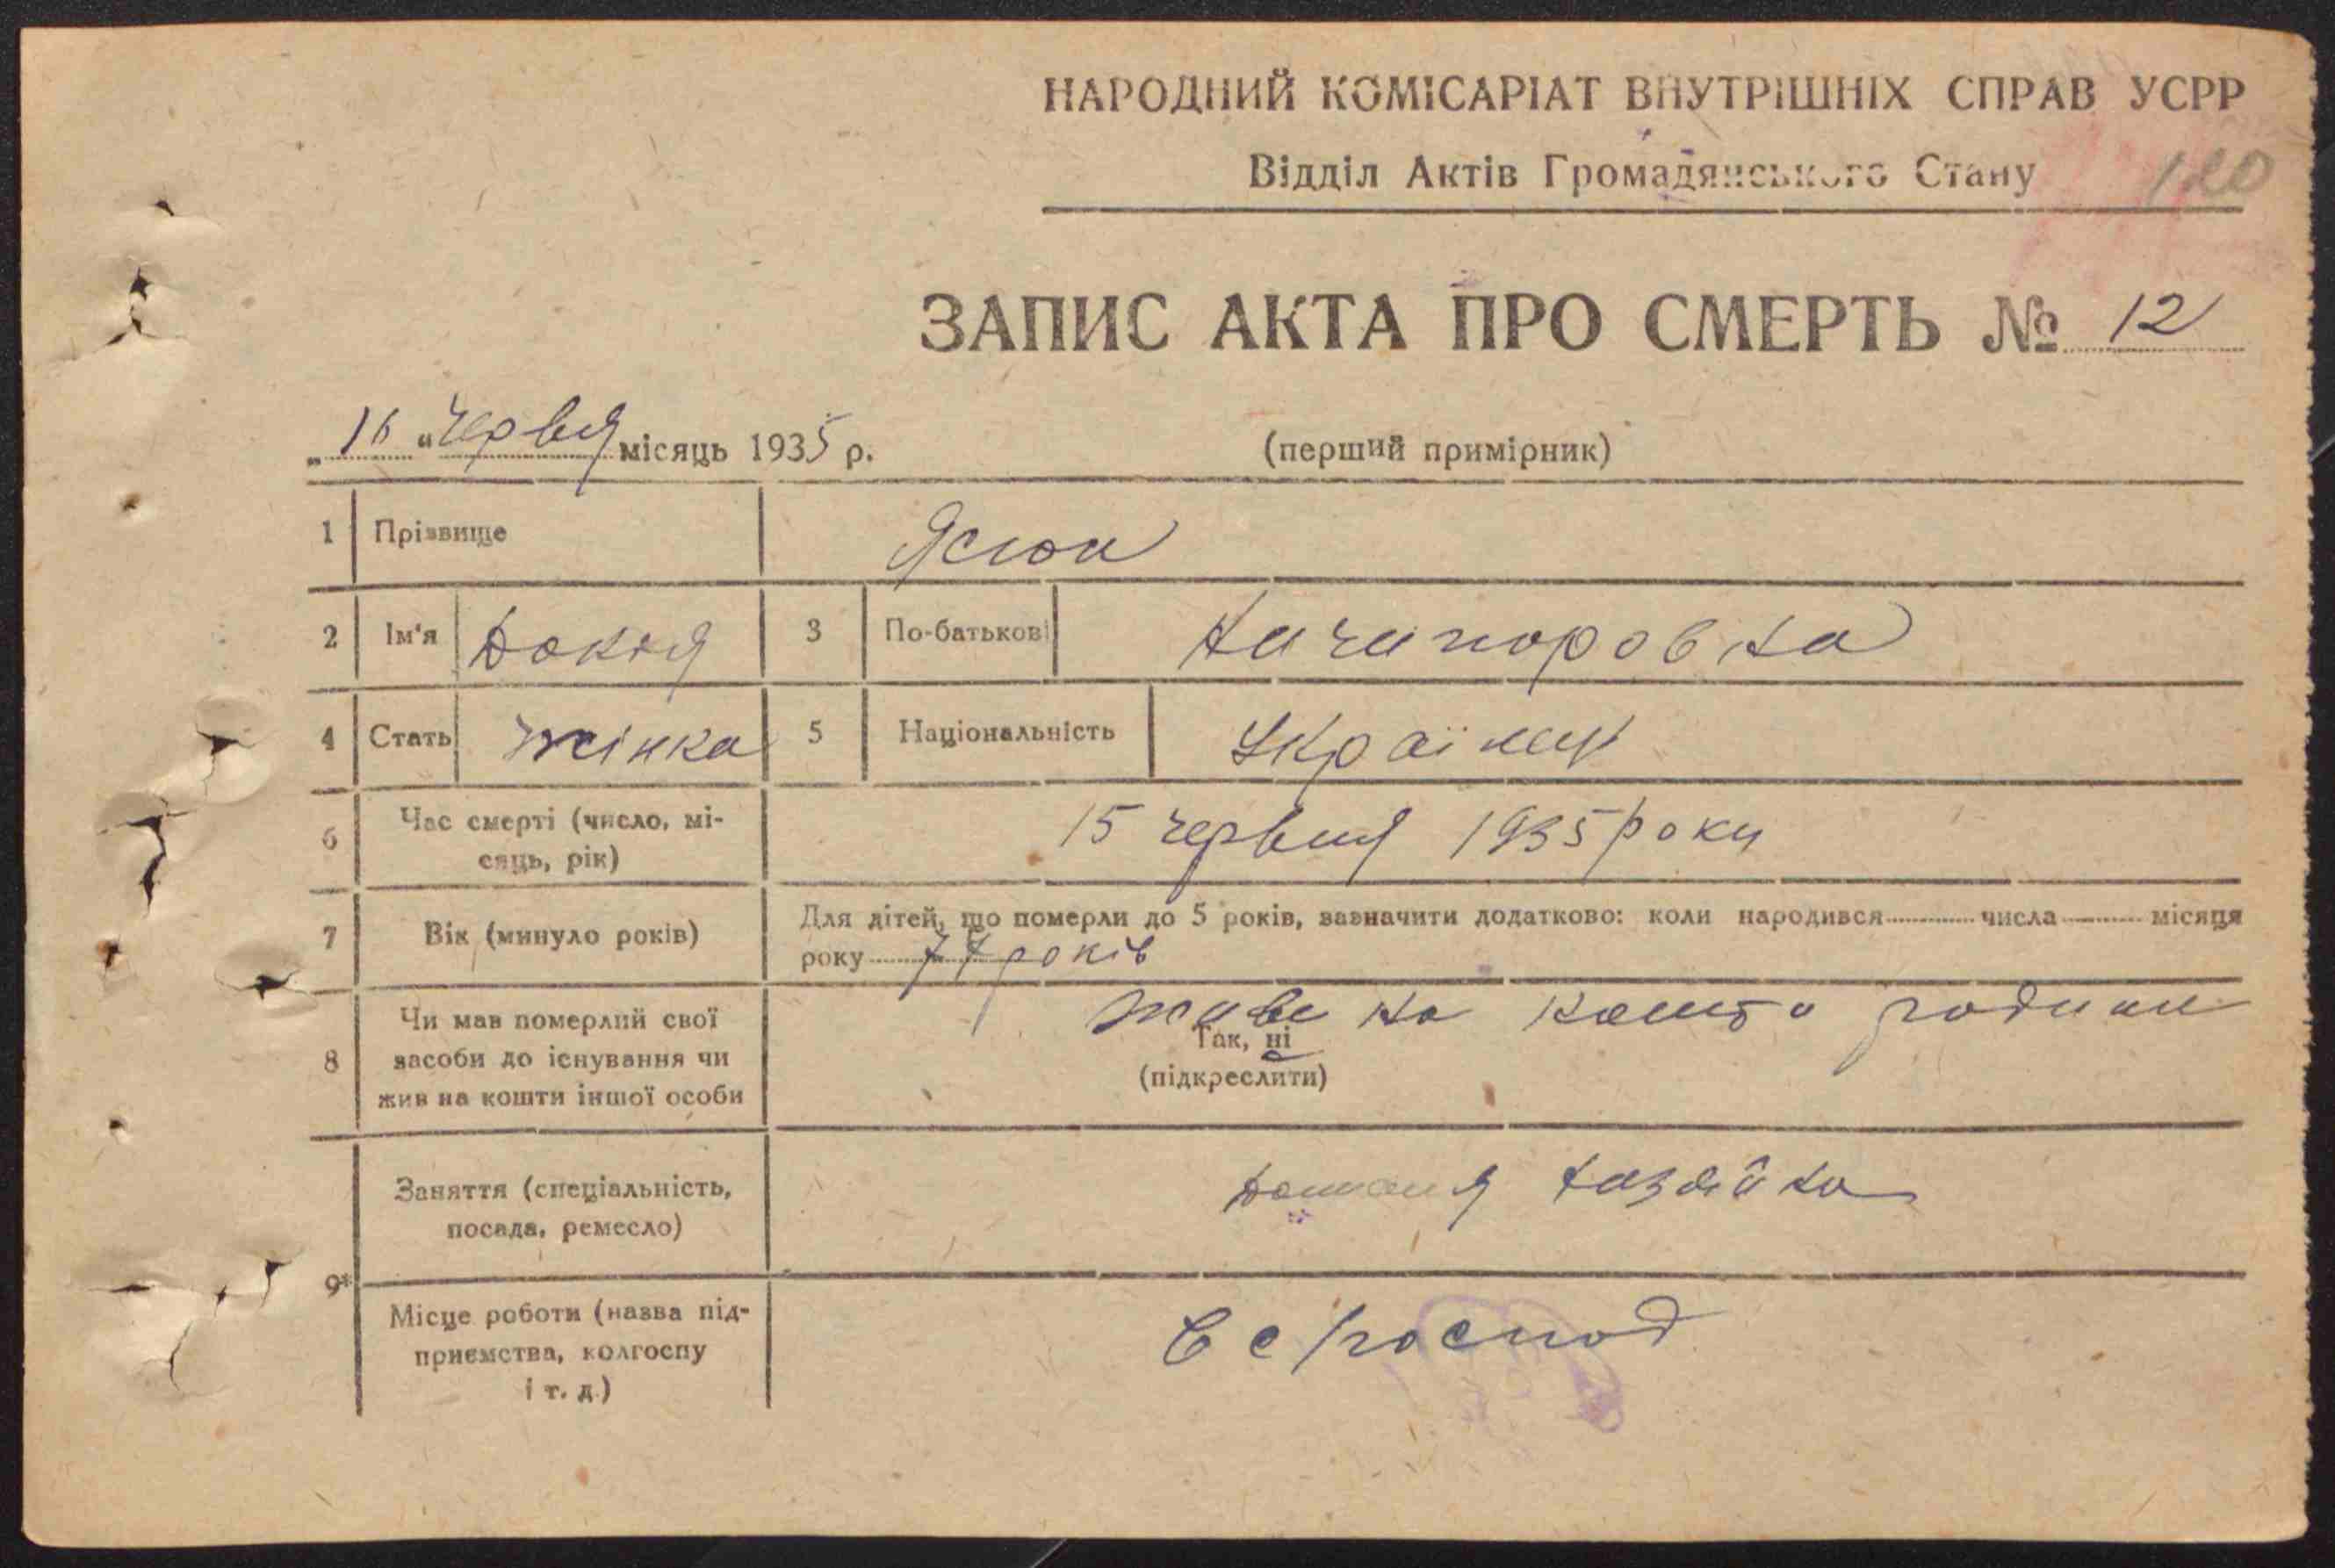 НАРОДНИЙ КОМІСАРІАТ ВНУТРІШНІХ СПРАВ УСРР
Відділ Актів Громадянського Стану 120
ЗАПИС АКТА ПРО СМЕРТЬ № 12
„16“ червня місяць 1935 р. (перший примірник)
1 Прізвище Ясюк
2 Ім'я Докія 3 По-батькові Ничипоровна
4 Стать жінка 5 Національність
6 Час смерті (число, мі-
сяць, рік) 15 червня 1935 року
7 Вік (минуло років) Для дітей, що померли до 5 років, зазначити додатково: коли народився числа місяця
року 77 років
8 Чи мав померлий свої
засоби до існування чи
жив на кошти іншої особи
живе на кошти родини
Так, ні
(підкреслити)
9* Заняття (спеціальність,
посада, ремесло) домашня хазяйка
Місце роботи (назва під-
приємства, колгоспу
і т. д.)